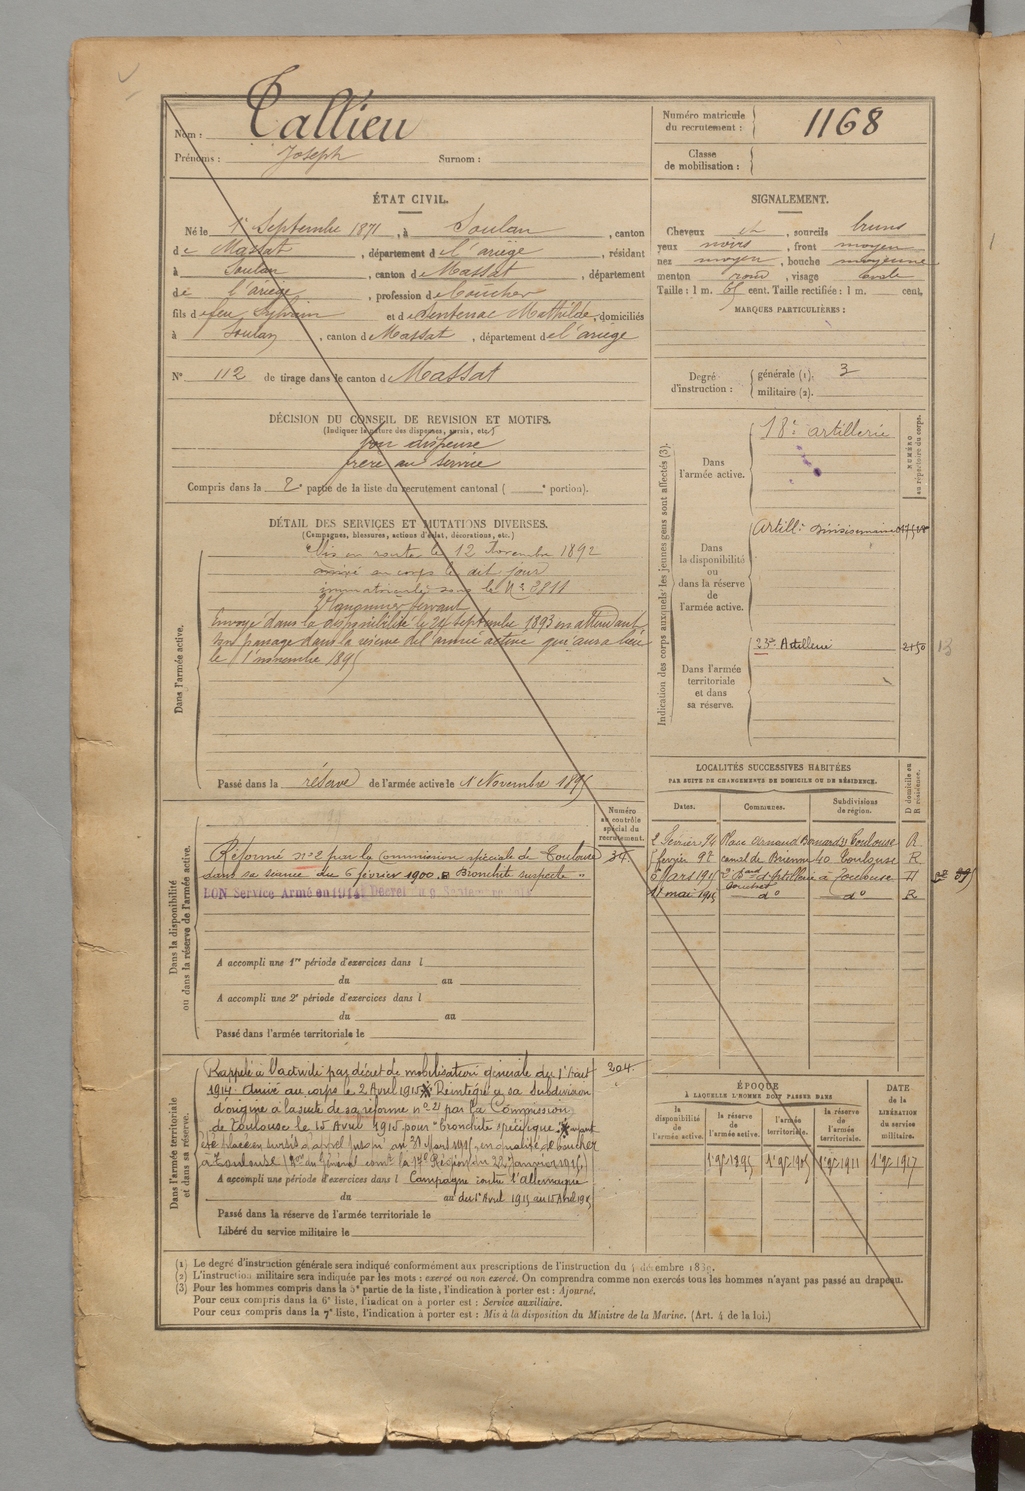 Nom : Tallieu
Prénoms : Joseph Surnom :
Numéro matricule du recrutement : 1168
Classe de mobilisation :
ÉTAT CIVIL.
Né le 1er Septembre 1871, à Soulan, canton
de Massat, département de l'ariège, résidant
à Soulan, canton de Massat, département
de l'ariège, profession de boucher
fils de feu Sylvain et de Sentenac Mathilde, domiciliés
à Soulan, canton de Massat, département de l'ariège
N° 112 de tirage dans le canton de Massat
SIGNALEMENT.
Cheveux et, sourcils bruns
yeux noirs, front moyen
nez moyen, bouche moyenne
menton rond, visage ovale
Taille : 1 m. 65 cent. Taille rectifiée : 1 m. cent.
MARQUES PARTICULIÈRES :
Degré d'instruction :
générale (1). 3
militaire (2).
DÉCISION DU CONSEIL DE REVISION ET MOTIFS.
(Indiquer la nature des dispenses, sursis, etc.)
bon dispensé
frère au service
Compris dans la 2e partie de la liste du recrutement cantonal ( e portion).
DÉTAIL DES SERVICES ET MUTATIONS DIVERSES.
(Campagnes, blessures, actions d'éclat, décorations, etc.)
Dans l'armée active.
Mis en route le 12 Novembre 1892
arrivé au corps le dit jour
immatriculé sous le N° 3811
2e Canonnier servant
Envoyé dans la disponibilité le 24 septembre 1893 en attendant
son passage dans la réserve de l'armée active qui aura lieu
le 1er novembre 1895
Passé dans la réserve de l'armée active le 1 Novembre 1895
Indication des corps auxquels les jeunes gens sont affectés (3).
NUMÉRO au répertoire du corps.
Dans l'armée active.
18e artillerie
Dans la disponibilité ou dans la réserve de l'armée active.
Artillie Divisionnaire
Dans l'armée territoriale et dans sa réserve.
23e Artillerie 2450 13
LOCALITÉS SUCCESSIVES HABITÉES
PAR SUITE DE CHANGEMENTS DE DOMICILE OU DE RÉSIDENCE.
Dates. Communes. Subdivisions de région. D domicile ou R résidence.
2 Février 94 Place Arnaud Bernard 21 Toulouse R
février 97 canal de Brienne 40 Toulouse R
Mars 1915 d'Artillerie à Toulouse
17 mai 1915 do do R
Dans la disponibilité ou dans la réserve de l'armée active.
Numéro au contrôle spécial du recrutement.
Réformé n°2 par la Commission spéciale de Toulouse 34.
dans sa séance du 6 février 1900. Bronchite suspecte "
BON Service Armé en 1914. Décret du 9 Septembre 1914
A accompli une 1re période d'exercices dans l
du au
A accompli une 2e période d'exercices dans l
du au
Passé dans l'armée territoriale le
Dans l'armée territoriale et dans sa réserve.
Rappelé à l'activité par décret de mobilisation générale du 1er Août 204.
1914. Arrivé au corps le 2 Avril 1915 Réintégré sa subdivision
d'origine à la suite de sa réforme n° 2 par la Commission
de Toulouse le 15 Avril 1915 pour "bronchite spécifique". ayant
été placé en sursis d'appel jusqu'au 31 Mars 1915, en qualité de boucher
à Toulouse (Don du Général comt la 17e Région du 22 Janvier 1915)
A accompli une période d'exercices dans l Campagne contre l'Allemagne
du au du 1er Avril 1915 au 15 Avril 1915
Passé dans la réserve de l'armée territoriale le
Libéré du service militaire le
ÉPOQUE
À LAQUELLE L'HOMME DOIT PASSER DANS
la disponibilité de l'armée active. la réserve de l'armée active. l'armée territoriale. la réserve de l'armée territoriale.
DATE de la LIBÉRATION du service militaire.
1er 9bre 1895 1er 9bre 1905 1er 9bre 1911 1er 9bre 1917
(1) Le degré d'instruction générale sera indiqué conformément aux prescriptions de l'instruction du 4 décembre 1889.
(2) L'instruction militaire sera indiquée par les mots : exercé ou non exercé. On comprendra comme non exercés tous les hommes n'ayant pas passé au drapeau.
(3) Pour les hommes compris dans la 5e partie de la liste, l'indication à porter est : Ajourné.
Pour ceux compris dans la 6e liste, l'indication à porter est : Service auxiliaire.
Pour ceux compris dans la 7e liste, l'indication à porter est : Mis à la disposition du Ministre de la Marine. (Art. 4 de la loi.)